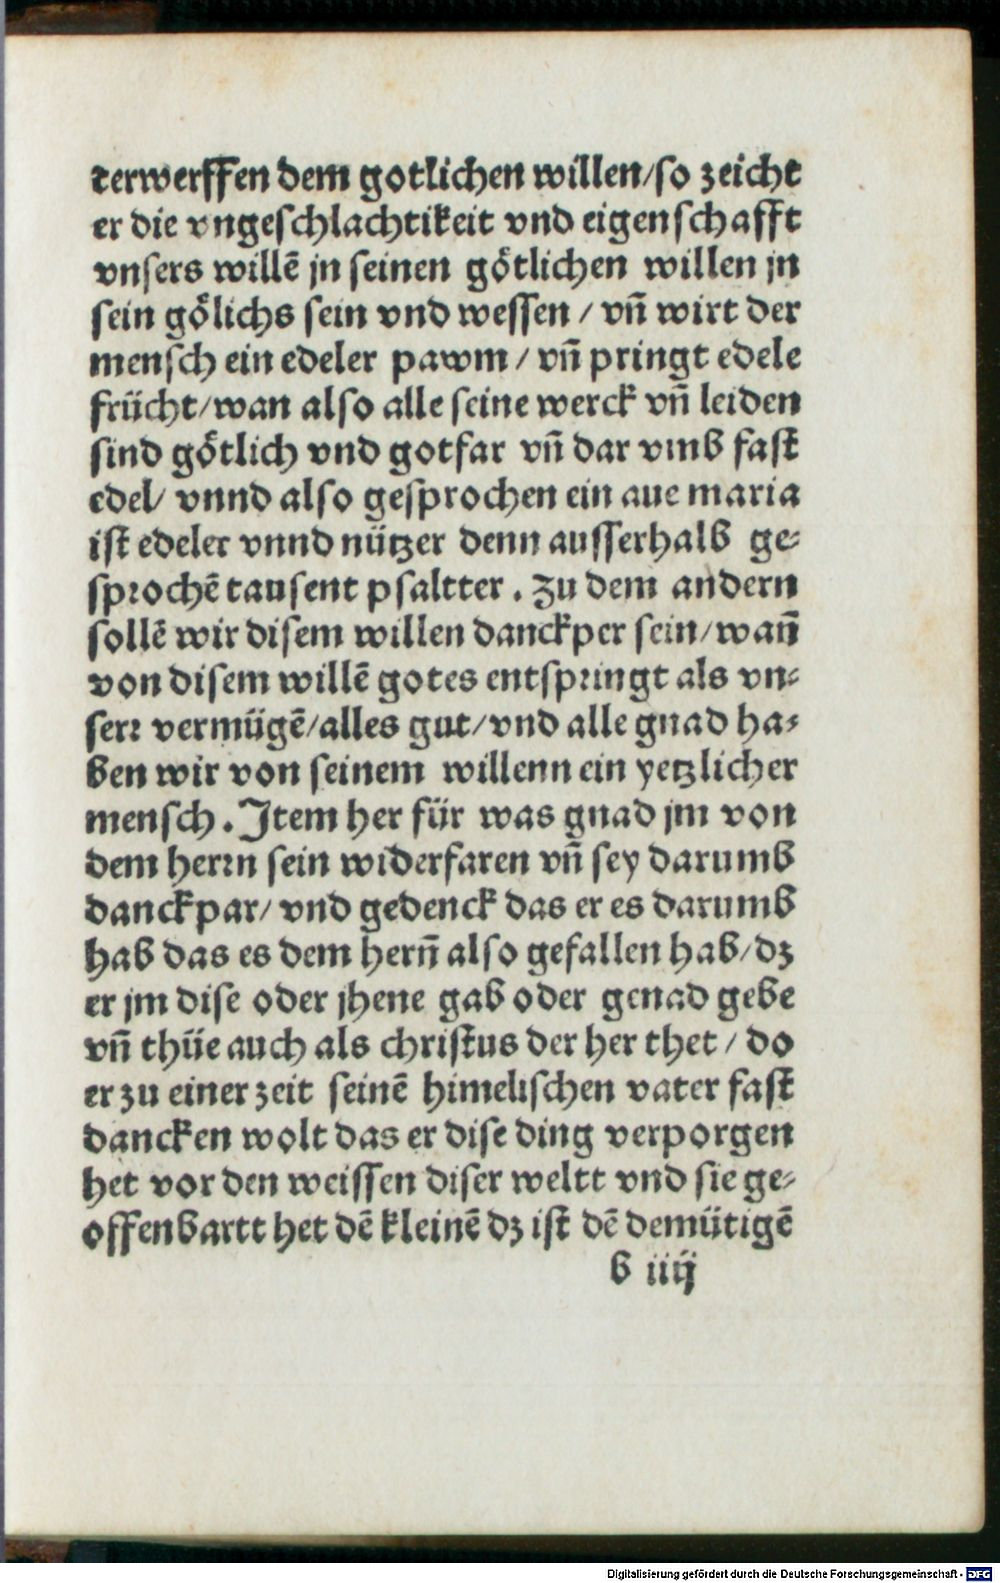 terwerffen dem gotlichen willen/so zeicht
er die vngeschlachtikeit vnd eigenschafft
vnsers willē jn seinen götlichen willen jn
sein gölichs sein vnd wessen / vn̄ wirt der
mensch ein edeler pawm / vn̄ pringt edele
frücht/wan also alle seine werck vn̄ leiden
sind götlich vnd gotfar vn̄ dar vmb fast
edel/ vnnd also gesprochen ein aue maria
ist edeler vnnd nützer denn ausserhalb ge-
sprochē tausent psaltter . Zu dem andern
sollē wir disem willen danckper sein/wan̄
von disem willē gotes entspringt als vn-
serr vermügē/alles gut/vnd alle gnad ha-
ben wir von seinem willenn ein yetzlicher
mensch . Item her für was gnad jm von
dem herrn sein widerfaren vn̄ sey darumb
danckpar/ vnd gedenck das er es darumb
hab das es dem hern̄ also gefallen hab/dz
er jm dise oder jhene gab oder genad gebe
vn̄ thüe auch als christus der her thet / do
er zu einer zeit seinē himelischen vater fast
dancken wolt das er dise ding verporgen
het vor den weissen diser weltt vnd sie ge-
offenbartt het dē kleinē dz ist dē demütigē
b iiij
Digitalisierung gefördert durch die Deutsche Forschungsgemeinschaft - DFG